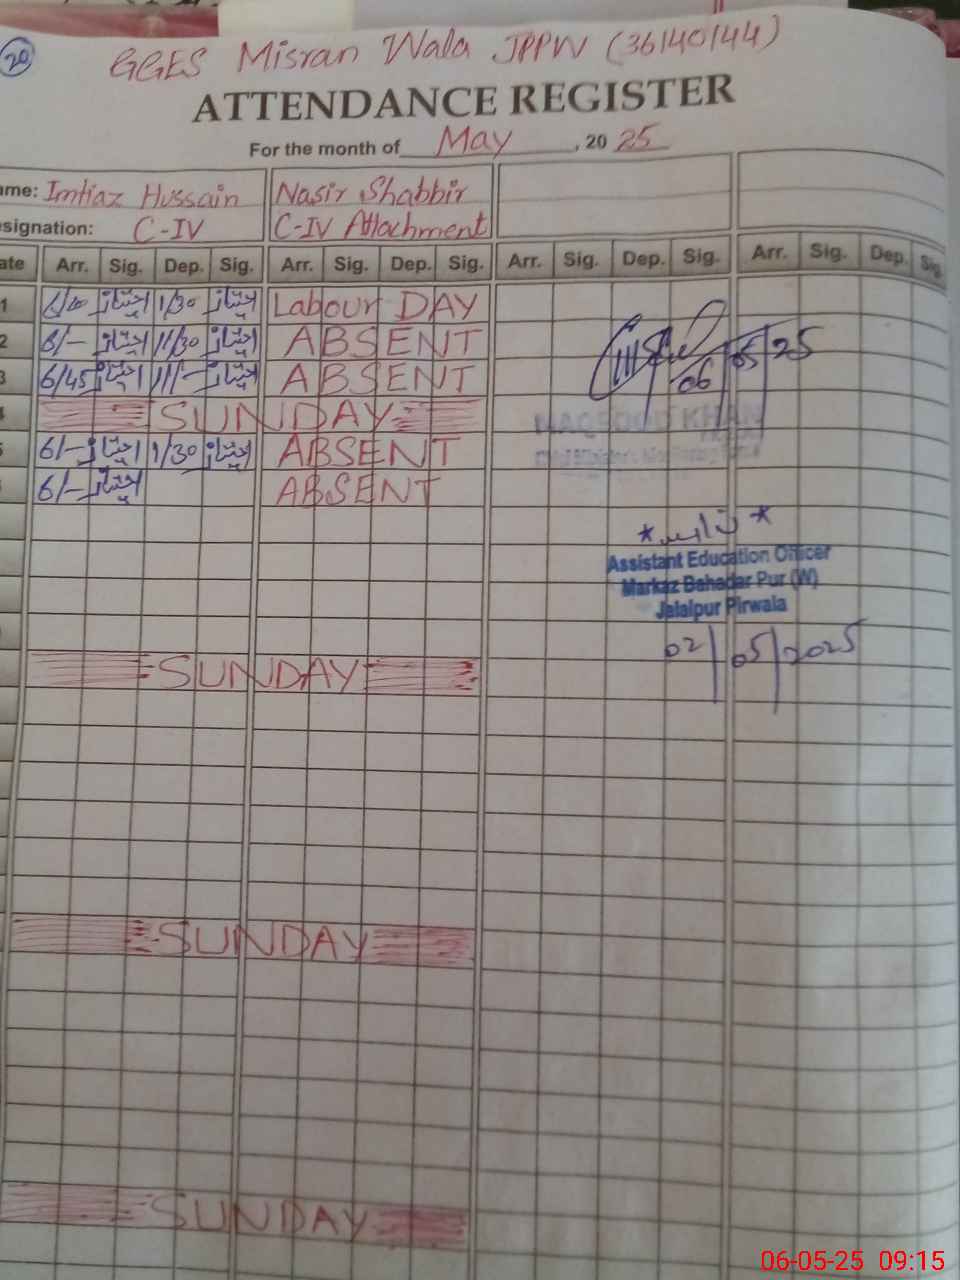 20
GGES Misran Wala JPPW (36140144)
ATTENDANCE REGISTER
For the month of May, 2025
ame: Imtiaz Hussain Nasir Shabbir
signation: C-IV C-IV Attachment
ate Arr. Sig. Dep. Sig. Arr. Sig. Dep. Sig. Arr. Sig. Dep. Sig. Arr. Sig. Dep. Sig.
1 امتیاز 1/30 امتیاز Labour DAY
2 6/- امتیاز 11/30 امتیاز ABSENT
3 6/45 امتیاز 11/- امتیاز ABSENT
SUNDAY
6/- امتیاز 1/30 امتیاز ABSENT
6/- امتیاز ABSENT
06/05/25
MAQSOOD KHAN
Assistant Education Officer
Markaz Bahadar Pur (W)
Jalalpur Pirwala
02/05/2025
SUNDAY
SUNDAY
SUNDAY
06-05-25 09:15